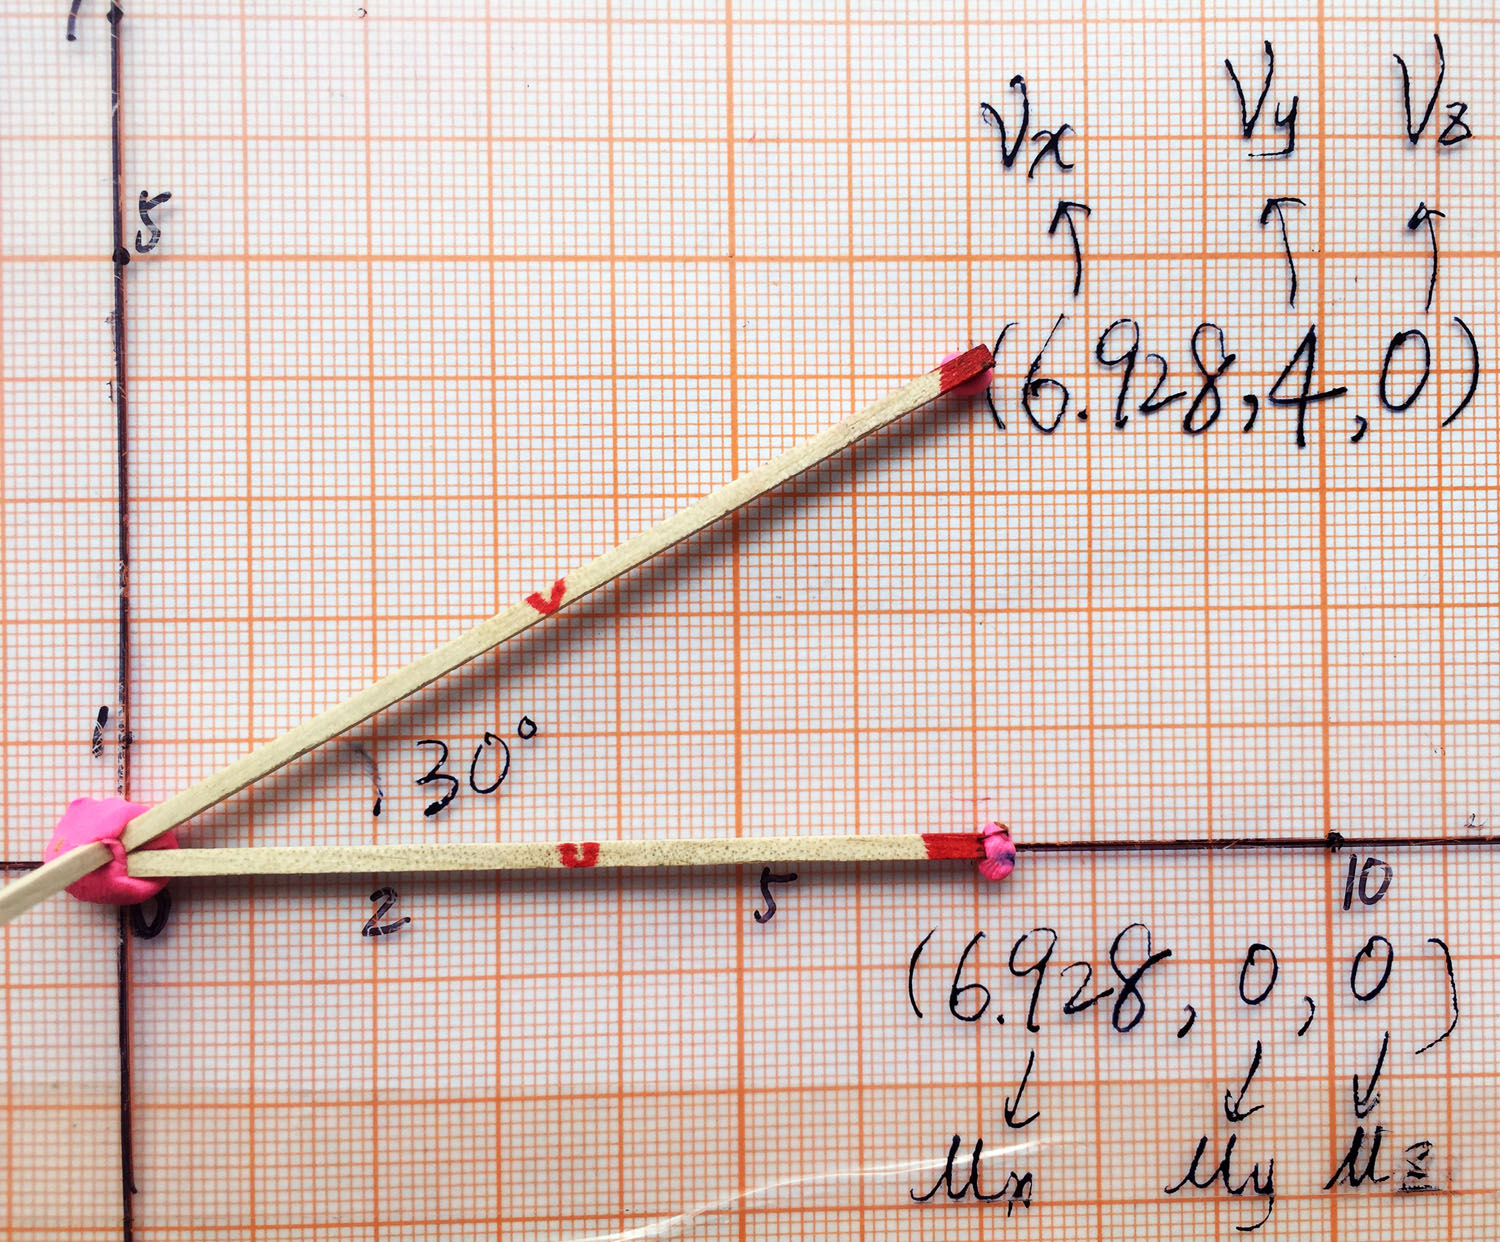 Vx Vy Vz
5
(6.928, 4, 0)
v
1
30°
u
0 2 5 10
(6.928, 0, 0)
Ux Uy Uz